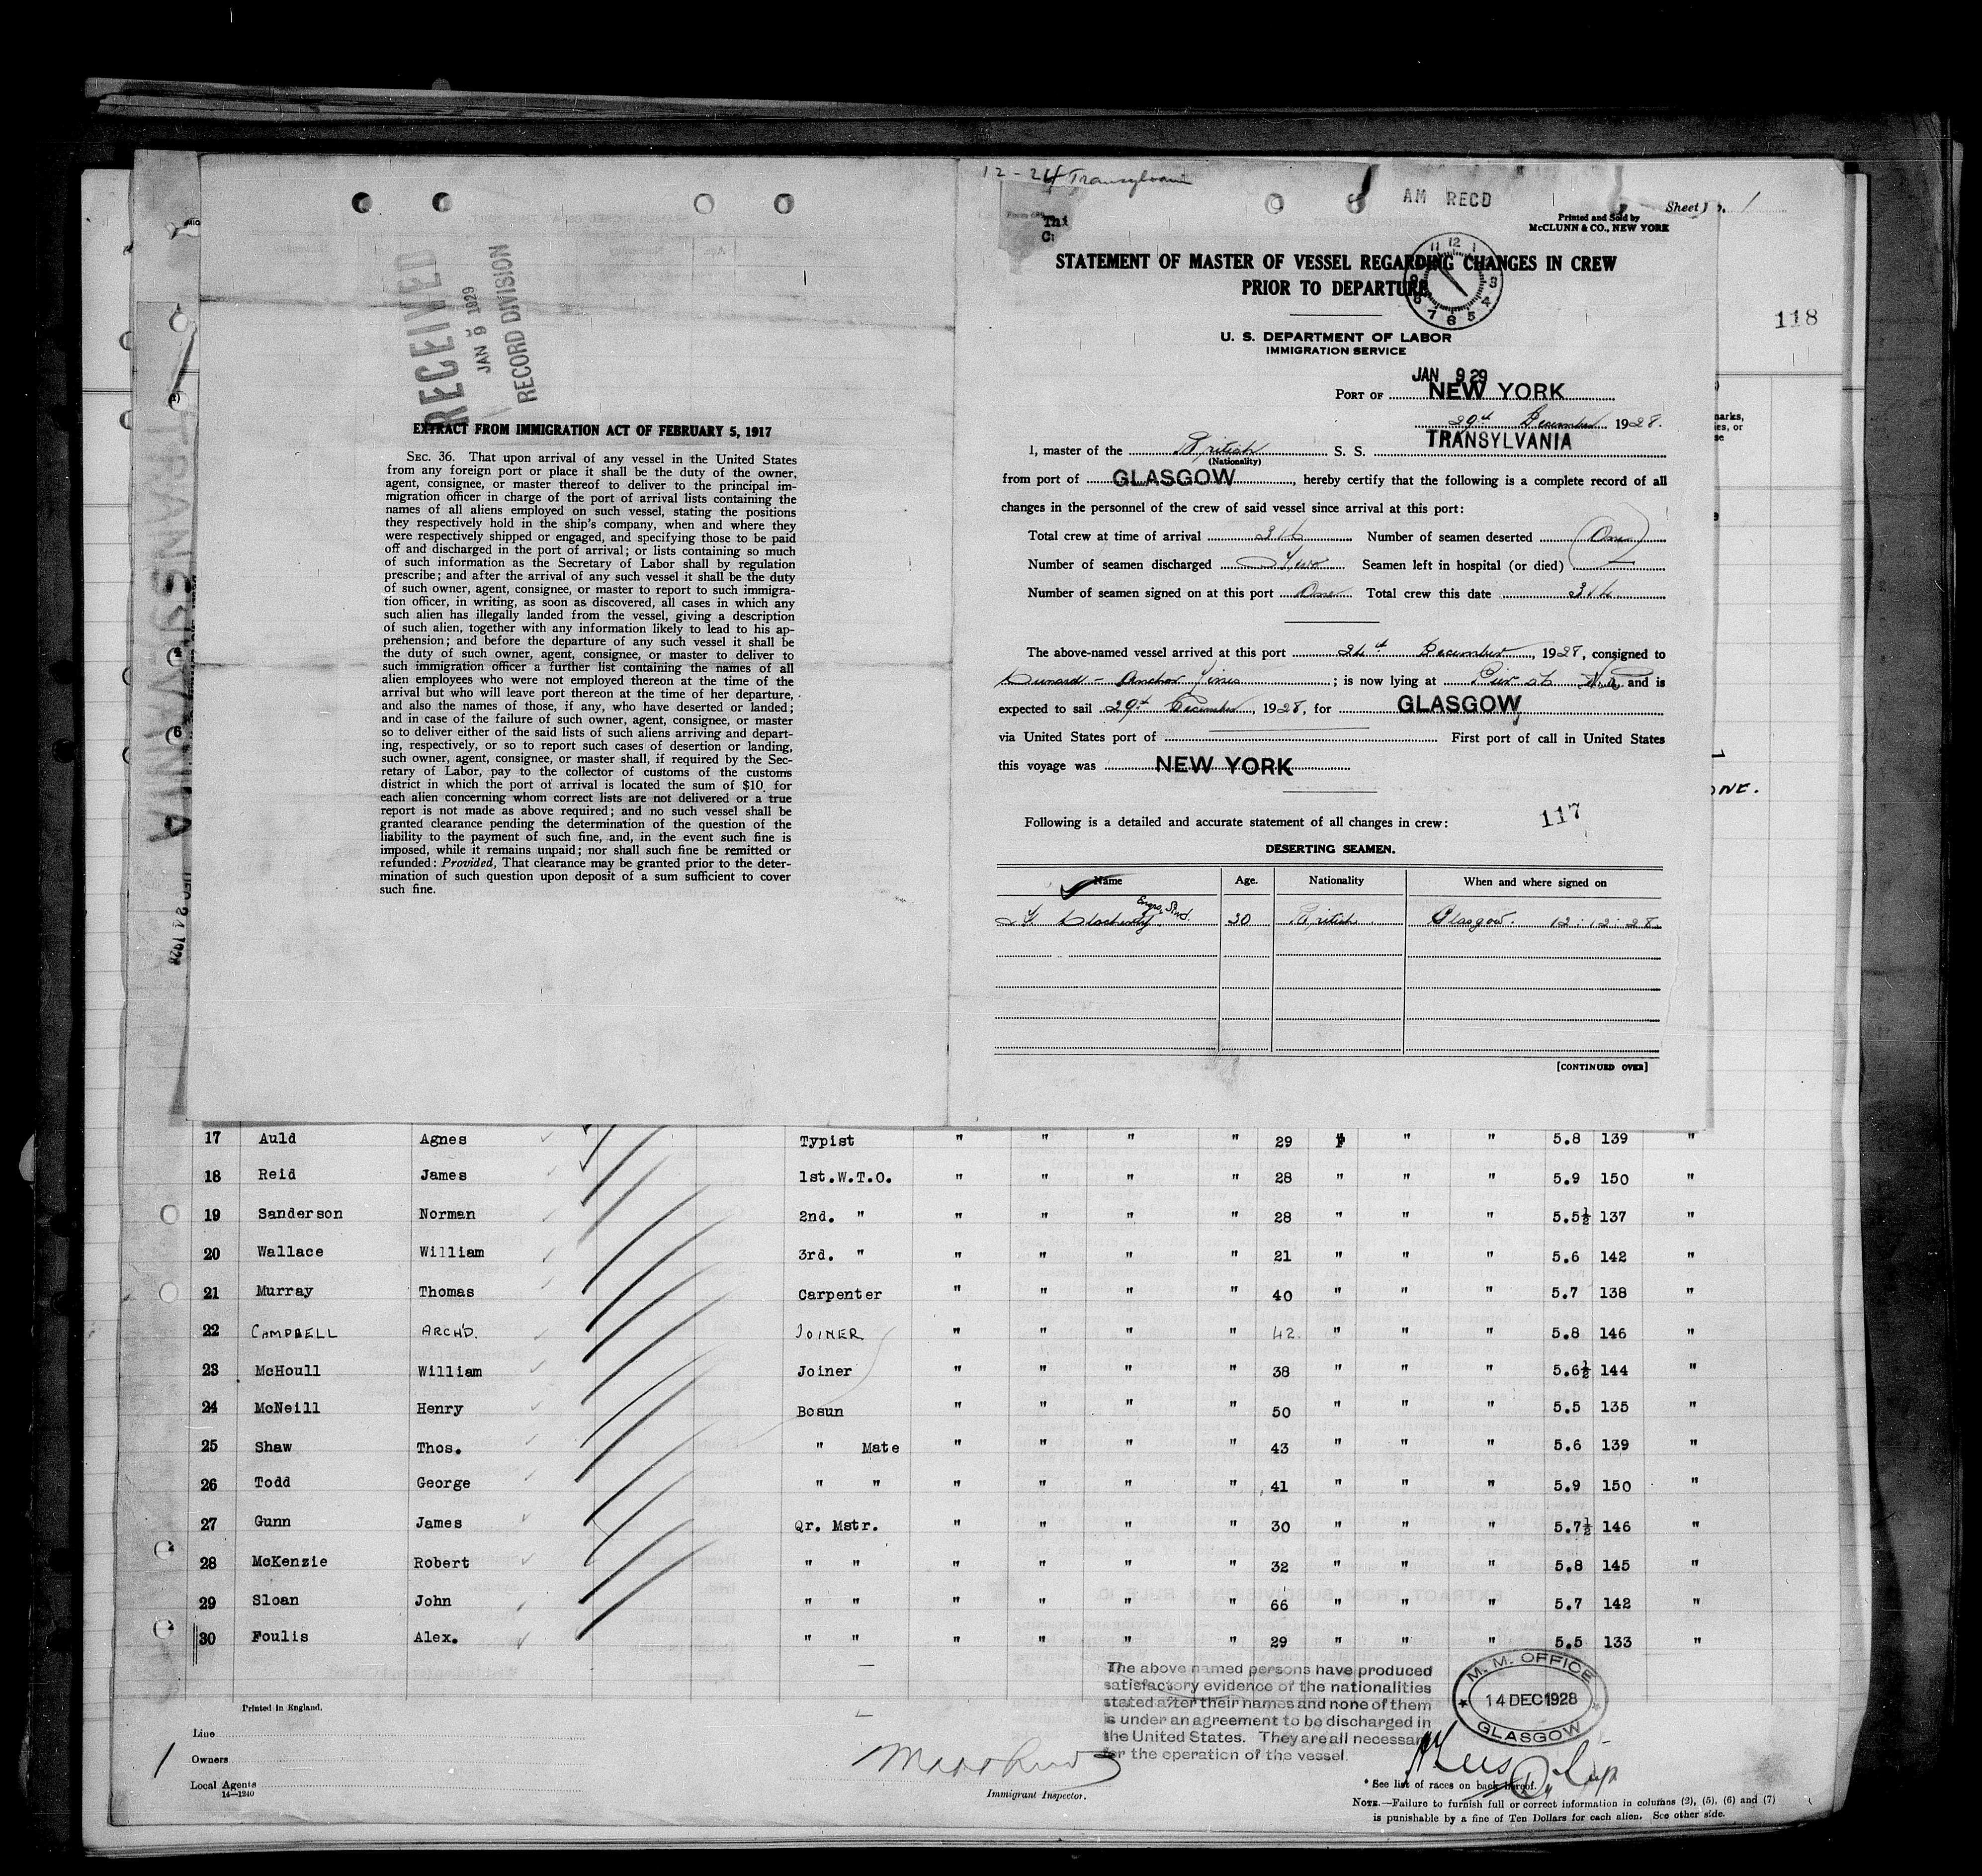 12-24 Transylvania
AM RECD
Sheet No. 1
Printed and Sold by
McCLUNN & CO., NEW YORK
Thi
STATEMENT OF MASTER OF VESSEL REGARDING CHANGES IN CREW
PRIOR TO DEPARTURE
U. S. DEPARTMENT OF LABOR
IMMIGRATION SERVICE
118
JAN 9 29
PORT OF NEW YORK
29th December 1928.
I, master of the British S. S. TRANSYLVANIA
(Nationality)
from port of GLASGOW, hereby certify that the following is a complete record of all
changes in the personnel of the crew of said vessel since arrival at this port:
Total crew at time of arrival 316 Number of seamen deserted One
Number of seamen discharged Two Seamen left in hospital (or died)
Number of seamen signed on at this port One Total crew this date 314
The above-named vessel arrived at this port 24th December, 1928, consigned to
Cunard - Anchor Lines; is now lying at Pier and is
expected to sail 29th December, 1928, for GLASGOW
via United States port of First port of call in United States
this voyage was NEW YORK
117
Following is a detailed and accurate statement of all changes in crew:
DESERTING SEAMEN.
Name Age. Nationality When and where signed on
Docherty 30 British Glasgow. 12:12:28
[CONTINUED OVER]
RECEIVED
JAN 9 1929
RECORD DIVISION
EXTRACT FROM IMMIGRATION ACT OF FEBRUARY 5, 1917
SEC. 36. That upon arrival of any vessel in the United States
from any foreign port or place it shall be the duty of the owner,
agent, consignee, or master thereof to deliver to the principal im-
migration officer in charge of the port of arrival lists containing the
names of all aliens employed on such vessel, stating the positions
they respectively hold in the ship's company, when and where they
were respectively shipped or engaged, and specifying those to be paid
off and discharged in the port of arrival; or lists containing so much
of such information as the Secretary of Labor shall by regulation
prescribe; and after the arrival of any such vessel it shall be the duty
of such owner, agent, consignee, or master to report to such immigra-
tion officer, in writing, as soon as discovered, all cases in which any
such alien has illegally landed from the vessel, giving a description
of such alien, together with any information likely to lead to his ap-
prehension; and before the departure of any such vessel it shall be
the duty of such owner, agent, consignee, or master to deliver to
such immigration officer a further list containing the names of all
alien employees who were not employed thereon at the time of the
arrival but who will leave port thereon at the time of her departure,
and also the names of those, if any, who have deserted or landed;
and in case of the failure of such owner, agent, consignee, or master
so to deliver either of the said lists of such aliens arriving and depart-
ing, respectively, or so to report such cases of desertion or landing,
such owner, agent, consignee, or master shall, if required by the Sec-
retary of Labor, pay to the collector of customs of the customs
district in which the port of arrival is located the sum of $10 for
each alien concerning whom correct lists are not delivered or a true
report is not made as above required; and no such vessel shall be
granted clearance pending the determination of the question of the
liability to the payment of such fine, and, in the event such fine is
imposed, while it remains unpaid; nor shall such fine be remitted or
refunded: Provided, That clearance may be granted prior to the deter-
mination of such question upon deposit of a sum sufficient to cover
such fine.
TRANSYLVANIA
DEC 24 1928
17 Auld Agnes Typist " " " " 29 " " 5.8 139 "
18 Reid James 1st.W.T.O. " " " " 28 " " " 5.9 150 "
19 Sanderson Norman 2nd. " " " " " 28 " " " 5.5½ 137 "
20 Wallace William 3rd. " " " " " 21 " " " 5.6 142 "
21 Murray Thomas Carpenter " " " " 40 " " " 5.7 138 "
22 CAMPBELL ARCH'D. JOINER " " " " 42. " " " 5.8 146 "
23 McHoull William Joiner " " " " 38 " " " 5.6½ 144 "
24 McNeill Henry Bosun " " " " 50 " " " 5.5 135 "
25 Shaw Thos. " Mate " " " " 43 " " " 5.6 139 "
26 Todd George " " " " " " 41 " " " 5.9 150 "
27 Gunn James Qr. Mstr. " " " " 30 " " " 5.7½ 146 "
28 McKenzie Robert " " " " " " 32 " " " 5.8 145 "
29 Sloan John " " " " " " 66 " " " 5.7 142 "
30 Foulis Alex. " " " " " " 29 " " " 5.5 133 "
The above named persons have produced
satisfactory evidence of the nationalities
stated after their names and none of them
is under an agreement to be discharged in
the United States. They are all necessary
for the operation of the vessel.
M. M. OFFICE
14 DEC 1928
GLASGOW
Printed in England.
Line
Owners
Local Agents
14—1240
1
Immigrant Inspector.
* See list of races on back hereof.
NOTE.—Failure to furnish full or correct information in columns (2), (5), (6) and (7)
is punishable by a fine of Ten Dollars for each alien. See other side.